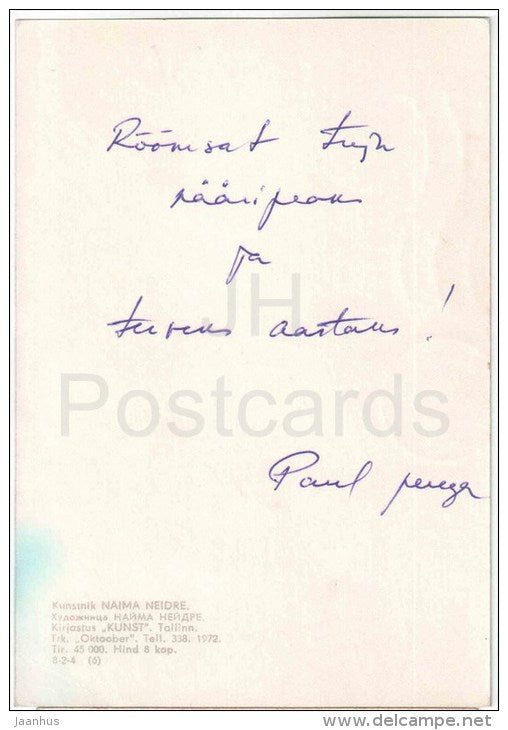 Rõõmsat tuju
nääripeoks
ja
terveks aastaks!
JH
Postcards
Paul perega
Kunstnik NAIMA NEIDRE.
Художница НАЙМА НЕЙДРЕ.
Kirjastus „KUNST". Tallinn.
Trk. „Oktoober". Tell. 338. 1972.
Tir. 45 000. Hind 8 kop.
8-2-4 (6)
jaanhus
delcampe.net